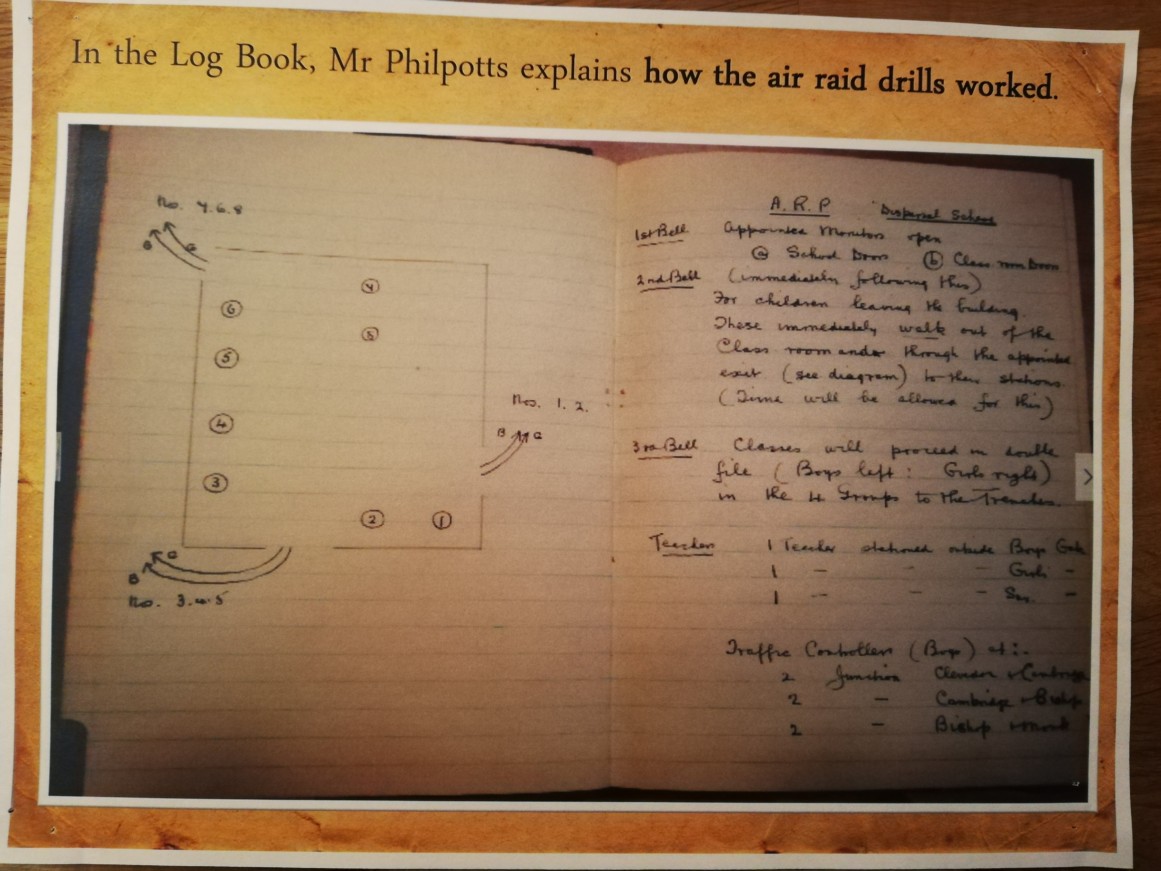 In the Log Book, Mr Philpotts explains how the air raid drills worked.
No. 7.6.8
B G
7
6
8
5
4
3
2 1
Nos. 1. 2.
B G
G
B
No. 3.4.5
A. R. P Dispersal Scheme
1st Bell Appointed Monitors open
(a) School Doors (b) Class room Doors
2nd Bell (immediately following this)
For children leaving the building.
These immediately walk out of the
Class room and through the appointed
exit (see diagram) to their stations
(Time will be allowed for this)
3rd Bell Classes will proceed in double
file (Boys left: Girls right)
in the 4 Groups to the Trenches.
Teachers 1 Teacher stationed outside Boys Gate
1 — — — Girls —
1 — — — —
Traffic Controllers (Boys) at:-
2 Junction Clevedon &
2 — Cambridge & Bishop
2 — Bishop &